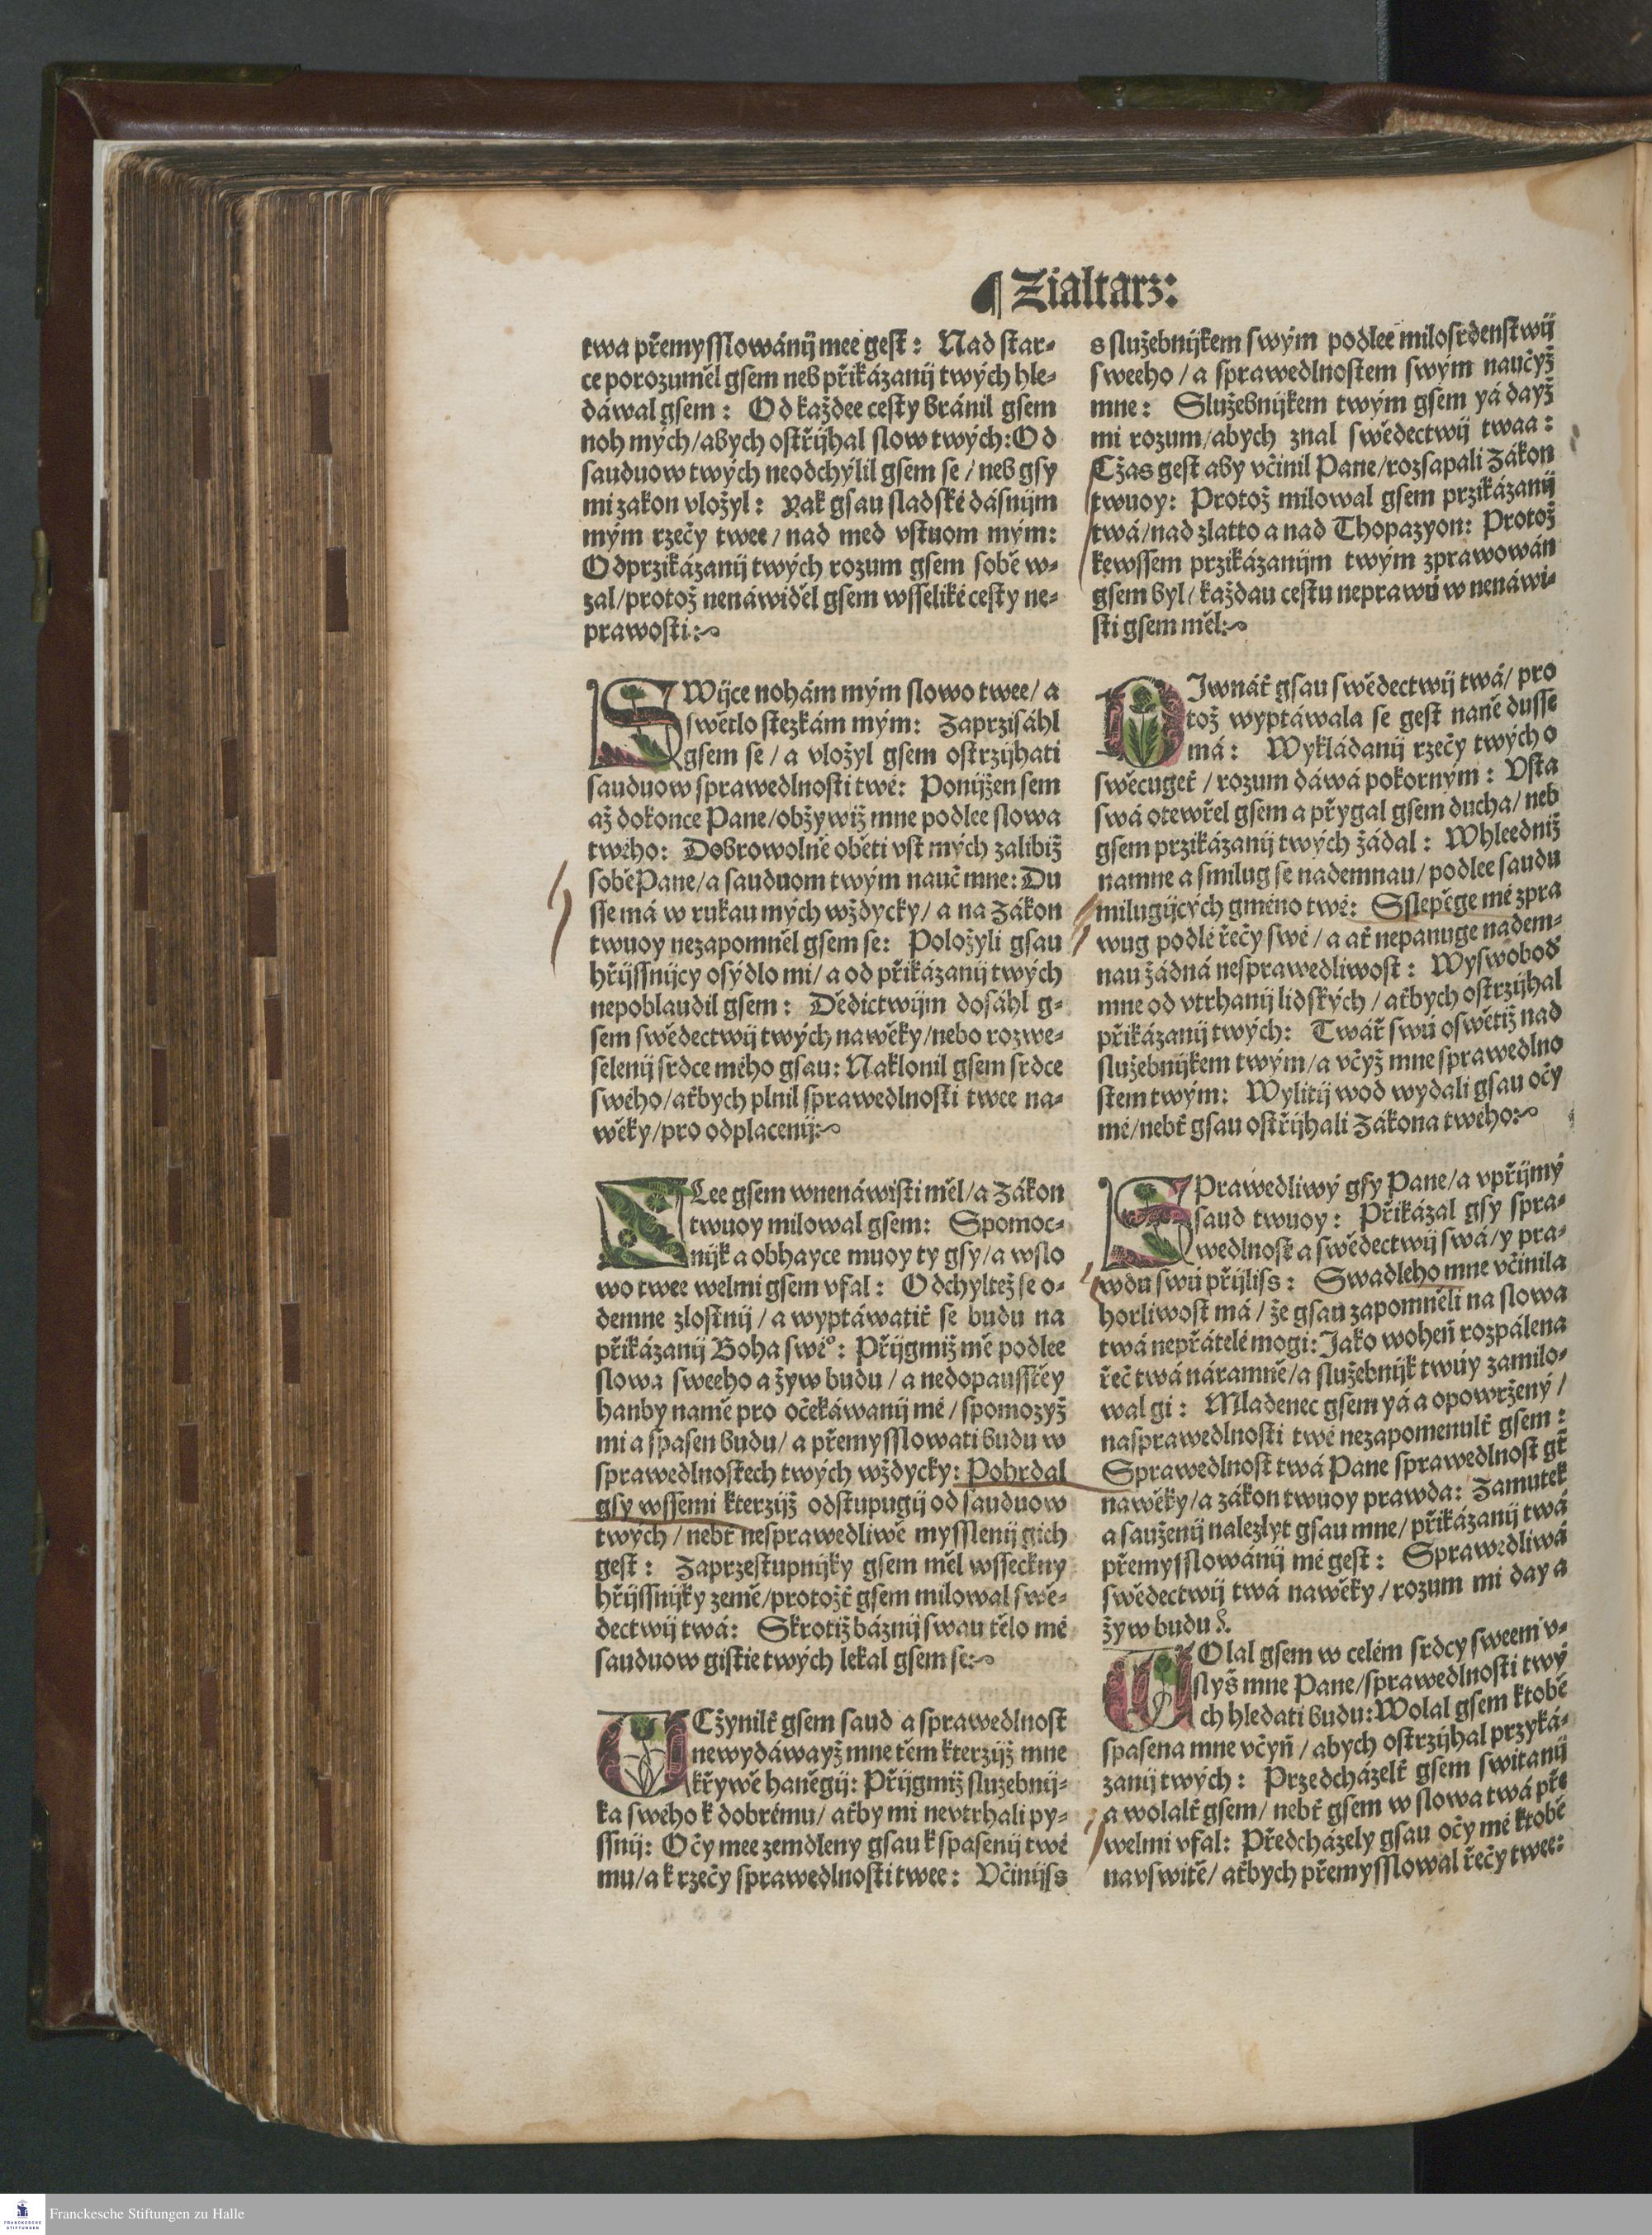 ¶ Zialtarz:
twa přemyſſlowánij mee geſt: Nad ſtar-
ce porozuměl gſem neb přikázanij twých hle-
dáwal gſem: Od každee ceſty bránil gſem
noh mých/abych oſtřijhal ſlow twých: Od
ſauduow twých neodchýlil gſem ſe/neb gſy
mi zakon vložyl: Kak gſau ſladſké dáſnijm
mým rzečy twee/nad med vſtuom mým:
Odprzikázanij twých rozum gſem ſobě w-
zal/protož nenáwiděl gſem wſſeliké ceſty ne-
prawoſti:
SWijce nohám mým ſlowo twee/a
ſwětlo ſtezkám mým: Zaprziſáhl
gſem ſe/a vložyl gſem oſtrzijhati
ſauduow ſprawedlnoſti twé: Ponijžen ſem
až dokonce Pane/obžywiž mne podlee ſlowa
twého: Dobrowolné oběti vſt mých zalibiž
ſobě Pane/a ſauduom twým nauč mne: Du
ſſe má w rukau mých wždycky/a na Zákon
twuoy nezapomněl gſem ſe: Položyli gſau
hřijſſnijcy oſýdlo mi/a od přikázanij twých
nepoblaudil gſem: Dědictwijm doſáhl g-
ſem ſwědectwij twých nawěky/nebo rozwe-
ſelenij ſrdce mého gſau: Naklonil gſem ſrdce
ſwého/ať bych plnil ſprawedlnoſti twee na-
wěky/pro odplacenij:
ZLee gſem wnenáwiſti měl/a Zákon
twuoy milowal gſem: Spomoc-
nijk a obhayce muoy ty gſy/a wſlo
wo twee welmi gſem vfal: Odchyltež ſe o-
demne zloſtnij/a wyptáwatiť ſe budu na
přikázanij Boha ſwé°: Přijgmiž mě podlee
ſlowa ſweeho a žyw budu/a nedopauſſtěy
hanby namě pro očekáwanij mé/ſpomozyž
mi a ſpaſen budu/a přemyſſlowati budu w
ſprawedlnoſtech twých wždycky: Pohrdal
gſy wſſemi kterzijž odſtupugij od ſauduow
twých/nebť neſprawedliwě myſſlenij gich
geſt: Zaprzeſtupnijky gſem měl wſſeckny
hřijſſnijky země/protožť gſem milowal ſwě-
dectwij twá: Skrotiž báznij ſwau tělo mé
ſauduow giſtie twých lekal gſem ſe:
VCžynilť gſem ſaud a ſprawedlnoſt
newydáwayž mne těm kterzijž mne
křywě haněgij: Přijgmiž ſluzebnij-
ka ſwého k dobrému/ať by mi nevtrhali py-
ſſnij: Očy mee zemdleny gſau k ſpaſenij twé
mu/a k rzečy ſprawedlnoſti twee: Včinijſs
s ſlužebnijkem ſwým podlee miloſrdenſtwij
ſweeho/a ſprawedlnoſtem ſwým naučyž
mne: Služebnijkem twým gſem yá dayž
mi rozum/abych znal ſwědectwij twaa:
Cžas geſt aby včinil Pane/rozſapali Zákon
twuoy: Protož milowal gſem przikázanij
twá/nad zlatto a nad Thopazyon: Protož
kewſſem przikázanijm twým zprawowán
gſem byl/každau ceſtu neprawú w nenáwi-
ſti gſem měl:
DIwnáť gſau ſwědectwij twá/pro
tož wyptáwala ſe geſt naně duſſe
má: Wykládanij rzečy twých o
ſwěcugeť/rozum dáwá pokorným: Vſta
ſwá otewřel gſem a přygal gſem ducha/neb
gſem przikázanij twých žádal: Whleedniž
namne a ſmilug ſe nademnau/podlee ſaudu
milugijcých gméno twé: Sſlepěge mé zpra
wug podlé řečy ſwé/a ať nepanuge nadem-
nau žádná neſprawedliwoſt: Wyſwoboď
mne od vtrhanij lidſkých/ať bych oſtrzijhal
přikázanij twých: Twář ſwú oſwětiž nad
ſlužebnijkem twým/a včyž mne ſprawedlno
ſtem twým: Wylitij wod wydali gſau očy
mé/nebť gſau oſtřijhali Zákona tweho:
SPrawedliwý gſy Pane/a vpřijmý
ſaud twuoy: Přikázal gſy ſpra-
wedlnoſt a ſwědectwij ſwá/y pra-
wdu ſwú přijliſs: Swadleho mne včinila
horliwoſt má/že gſau zapomněli na ſlowa
twá nepřátelé mogi: Jako woheň rozpálena
řeč twá náramně/a ſlužebnijk twúy zamilo-
wal gi: Mladenec gſem yá a opowržený/
naſprawedlnoſti twé nezapomenulť gſem:
Sprawedlnoſt twá Pane ſprawedlnoſt gť
nawěky/a zákon twuoy prawda: Zamutek
a ſauženij nalezlyť gſau mne/přikázanij twá
přemyſſlowánij mé geſt: Sprawedliwá
ſwědectwij twá nawěky/rozum mi day a
žyw budu.
WOlal gſem w celém ſrdcy ſweem v-
ſlyš mne Pane/ſprawedlnoſti twý
ch hledati budu: Wolal gſem ktobě
ſpaſena mne včyň/abych oſtrzijhal przyká-
zanij twých: Przedcházelť gſem ſwitanij
a wolalť gſem/nebť gſem w ſlowa twá pře
welmi vfal: Předcházely gſau očy mé ktobě
navſwitě/ať bych přemyſſlowal řečy twee:
Franckesche Stiftungen zu Halle
FRANCKESCHE
STIFTUNGEN